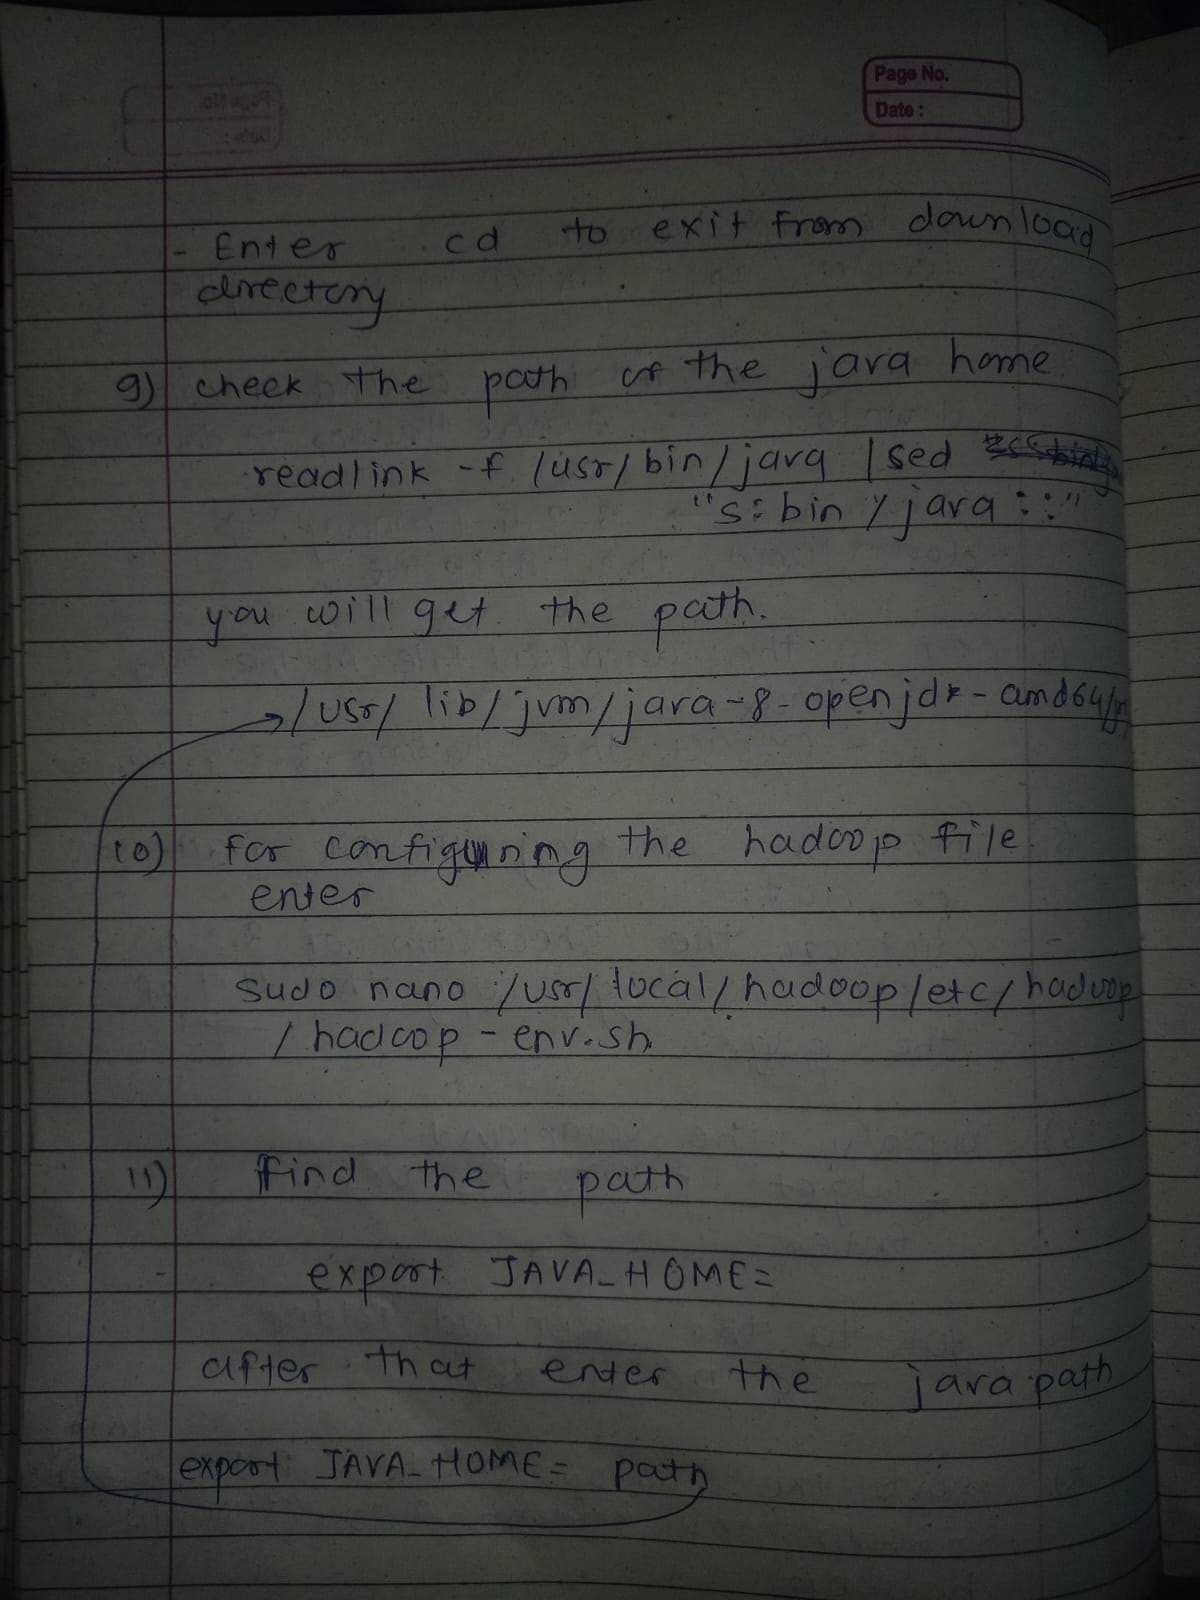 Page No.
Date :
- Enter cd to exit from download
directory
9) check the path of the java home
readlink -f /usr/bin/java | sed
"s:bin/java::"
you will get the path.
/usr/lib/jvm/java-8-openjdk-amd64/
10) for configuring the hadoop file
enter
sudo nano /usr/local/hadoop/etc/hadoop
/hadoop-env.sh
11) find the path
export JAVA_HOME=
after that enter the java path
export JAVA_HOME= path